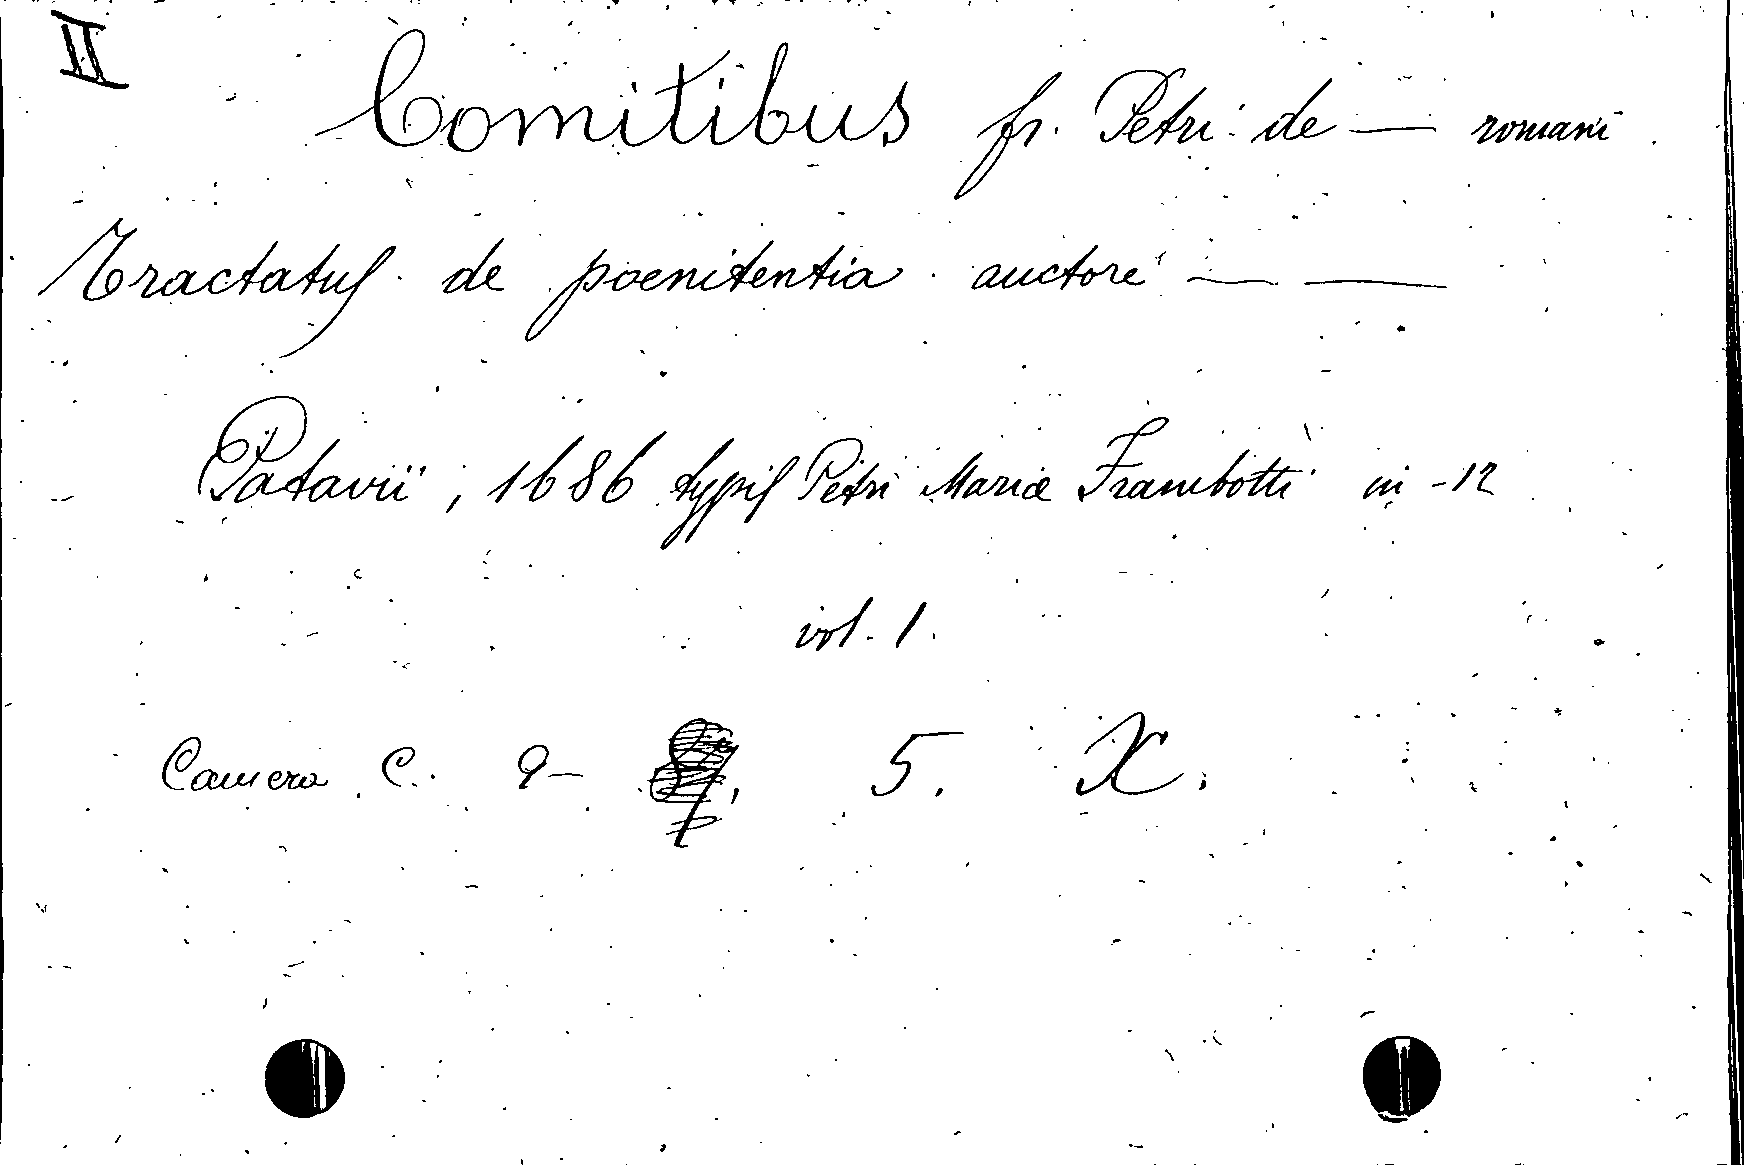 II
Comitibus fr. Petri de — romani
Tractatus de poenitentia auctore — —
Patavii, 1686 typis Petri Mariæ Frambotti in-12
vol. 1.
Camera C. 9- 5. X.